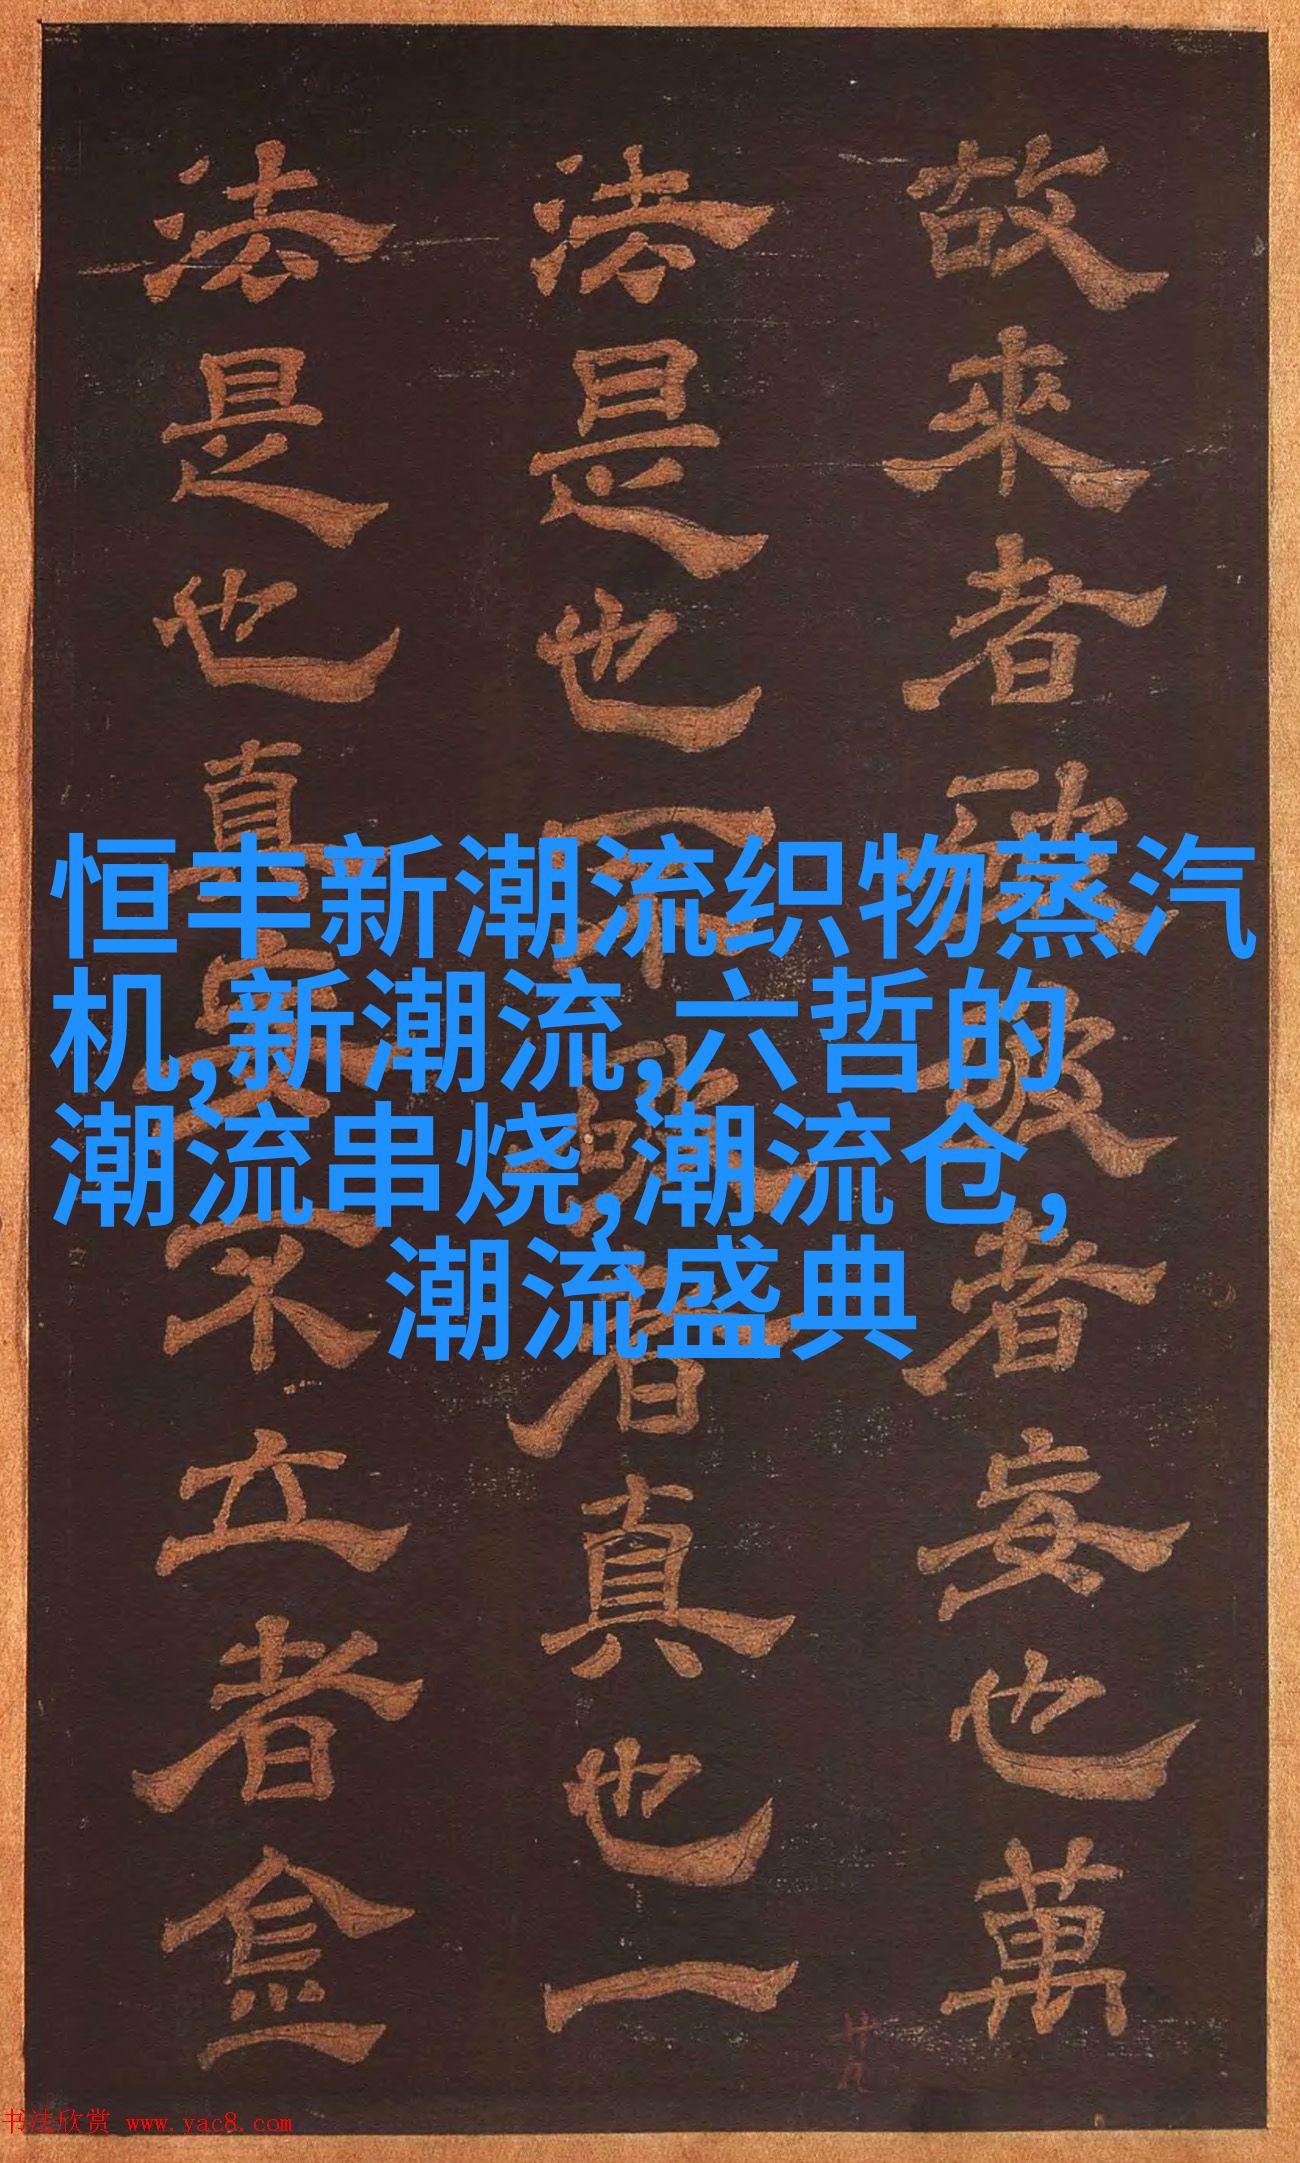 故来者硋破者妄也萬
法是也不破者真也一
法是也真妄不立者僉
恒丰新潮流织物蒸汽
机,新潮流,六哲的
潮流串烧,潮流仓,
潮流盛典
廿九
书法欣赏 www.yac8.com